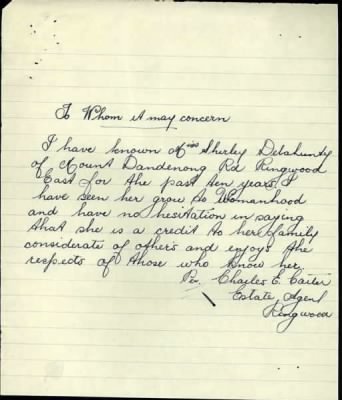 To Whom it may concern
I have known Miss Shirley Delahunty
of Mount Dandenong Rd Ringwood
East for the past ten years. I
have seen her grow to Womanhood
and have no hesitation in saying
that she is a credit to her family
considerate of others and enjoys the
respects of those who know her.
Per. Charles E. Carter
Estate, Agent
Ringwood